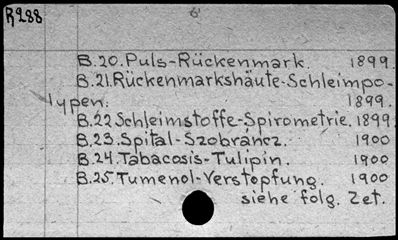 R288
6
B.20.Puls-Rückenmark. 1899.
B.21.Rückenmarkshäute-Schleimpo-
lypen. 1899.
B.22 Schleimstoffe-Spirometrie. 1899.
B.23.Spital-Szobráncz. 1900
B.24.Tabacosis-Tulipin. 1900
B.25.Tumenol-Verstopfung. 1900
siehe folg. Zet.